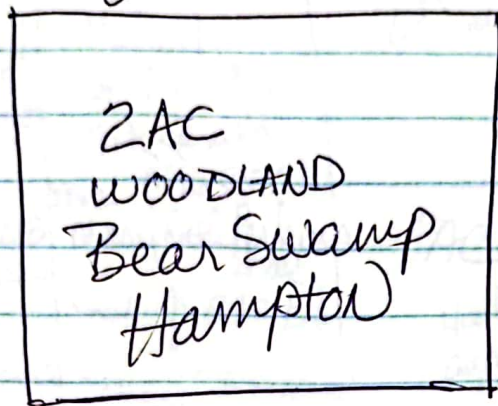 2AC
WOODLAND
Bear Swamp
Hampton